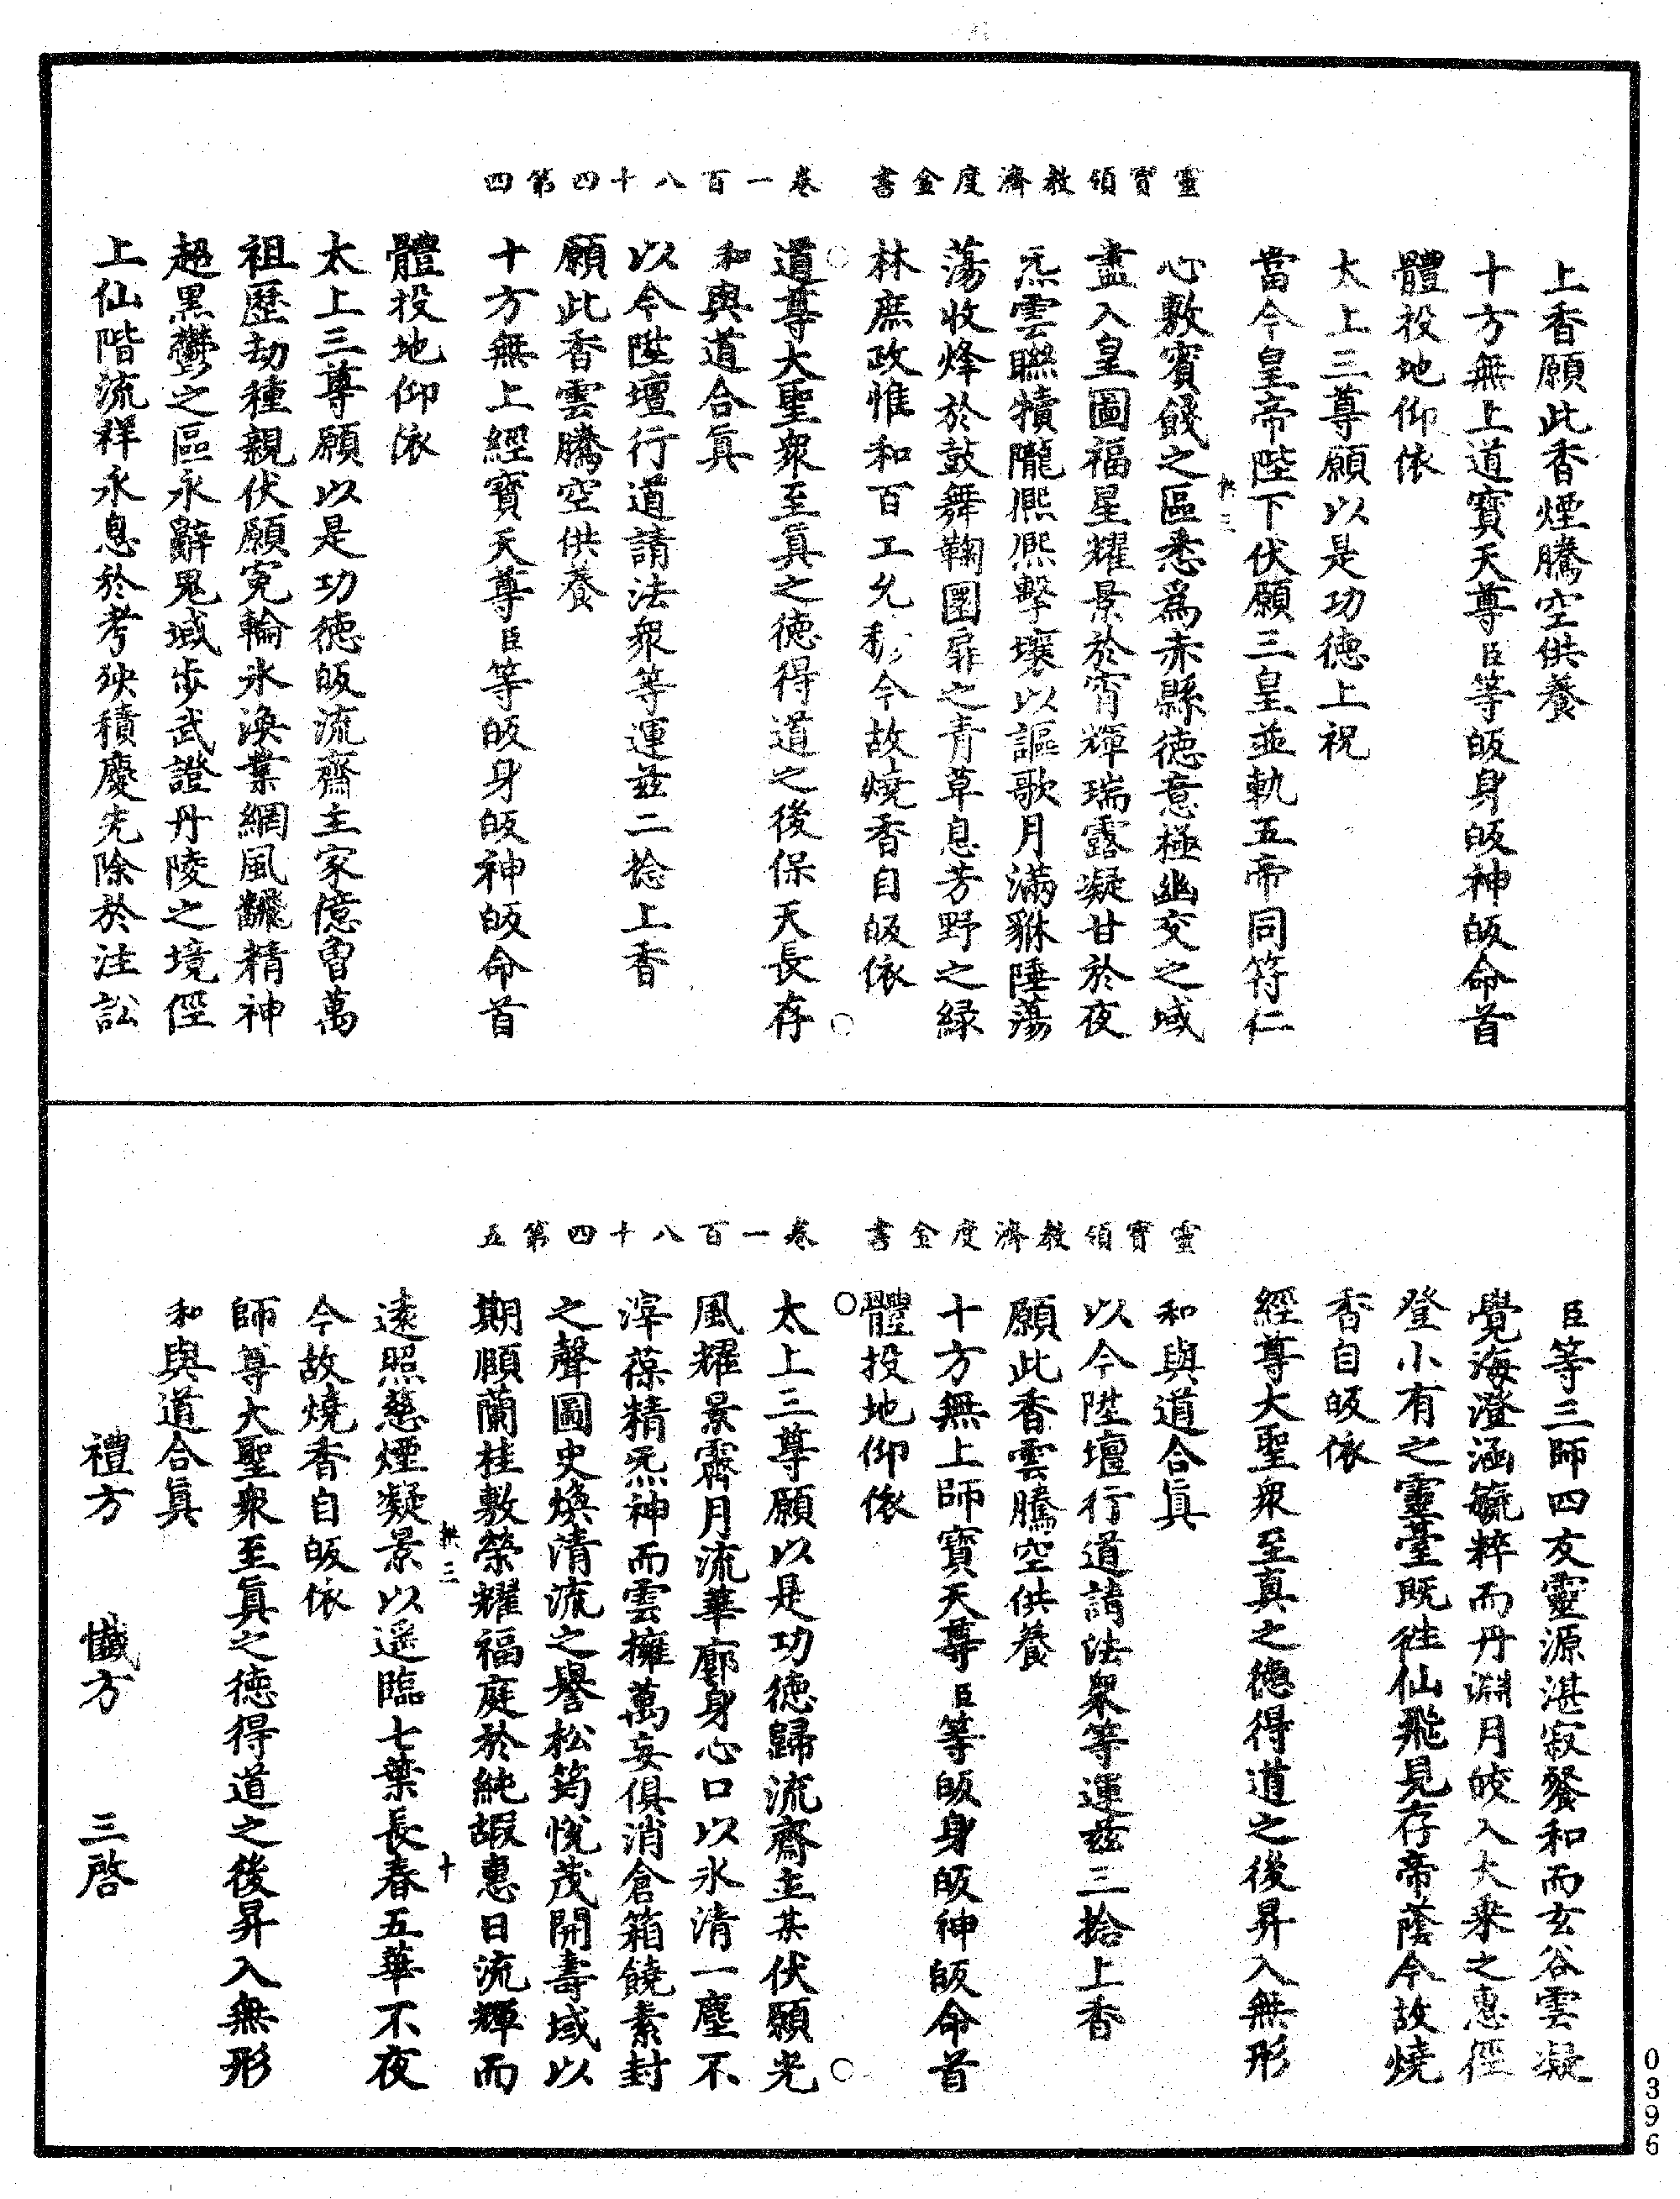 靈寶領教濟度金書　卷一百八十四第四
上香願此香煙騰空供養
十方無上道寶天尊臣等皈身皈神皈命首
體投地仰依
太上三尊願以是功德上祝
當今皇帝陛下伏願三皇並軌五帝同符仁
心敷賓餞之區悉爲赤縣德意極幽交之域
盡入皇圖福星耀景於宵輝瑞露凝甘於夜
炁雲聯犢隴熈熈擊壤以謳歌月滿貅陲蕩
蕩收烽於鼓舞鞠圄扉之青草息芳野之緑
林庶政惟和百工允 今故燒香自皈依
道尊大聖衆至眞之德得道之後保天長存
和與道合眞
以今陞壇行道請法衆等運茲二捻上香
願此香雲騰空供養
十方無上經寶天尊臣等皈身皈神皈命首
體投地仰依
太上三尊願以是功德皈流齋主家億曽萬
祖歷劫種親伏願寃輪氷渙業網風飜精神
超黑鬱之區永辭鬼域步武證丹陵之境徑
上仙階流祥永息於考殃積慶先除於注訟
靈寶領教濟度金書　卷一百八十四第五
臣等三師四友靈源湛寂發和而玄谷雲凝
覺海澄涵毓粹而丹淵月皎入大乘之惠徑
登小有之靈臺既往仙飛見存帝蔭今故燒
香自皈依
經尊大聖衆至真之德得道之後昇入無形
和與道合眞
以今陞壇行道請法衆等運茲三捻上香
願此香雲騰空供養
十方無上師寶天尊臣等皈身皈神皈命首
體投地仰依
太上三尊願以是功德歸流齋主某伏願光
風耀景霽月流華廓身心口以氷清一塵不
滓葆精炁神而雲擁萬妄俱消倉箱饒素封
之聲圖史煥清流之譽松筠悅茂開壽域以
期頤蘭桂敷榮耀福庭於純嘏惠日流輝而
遠照慈煙凝景以遥臨七葉長春五華不夜
今故燒香自皈依
師尊大聖衆至眞之德得道之後昇入無形
和與道合眞
禮方　懺方　三啓
0396